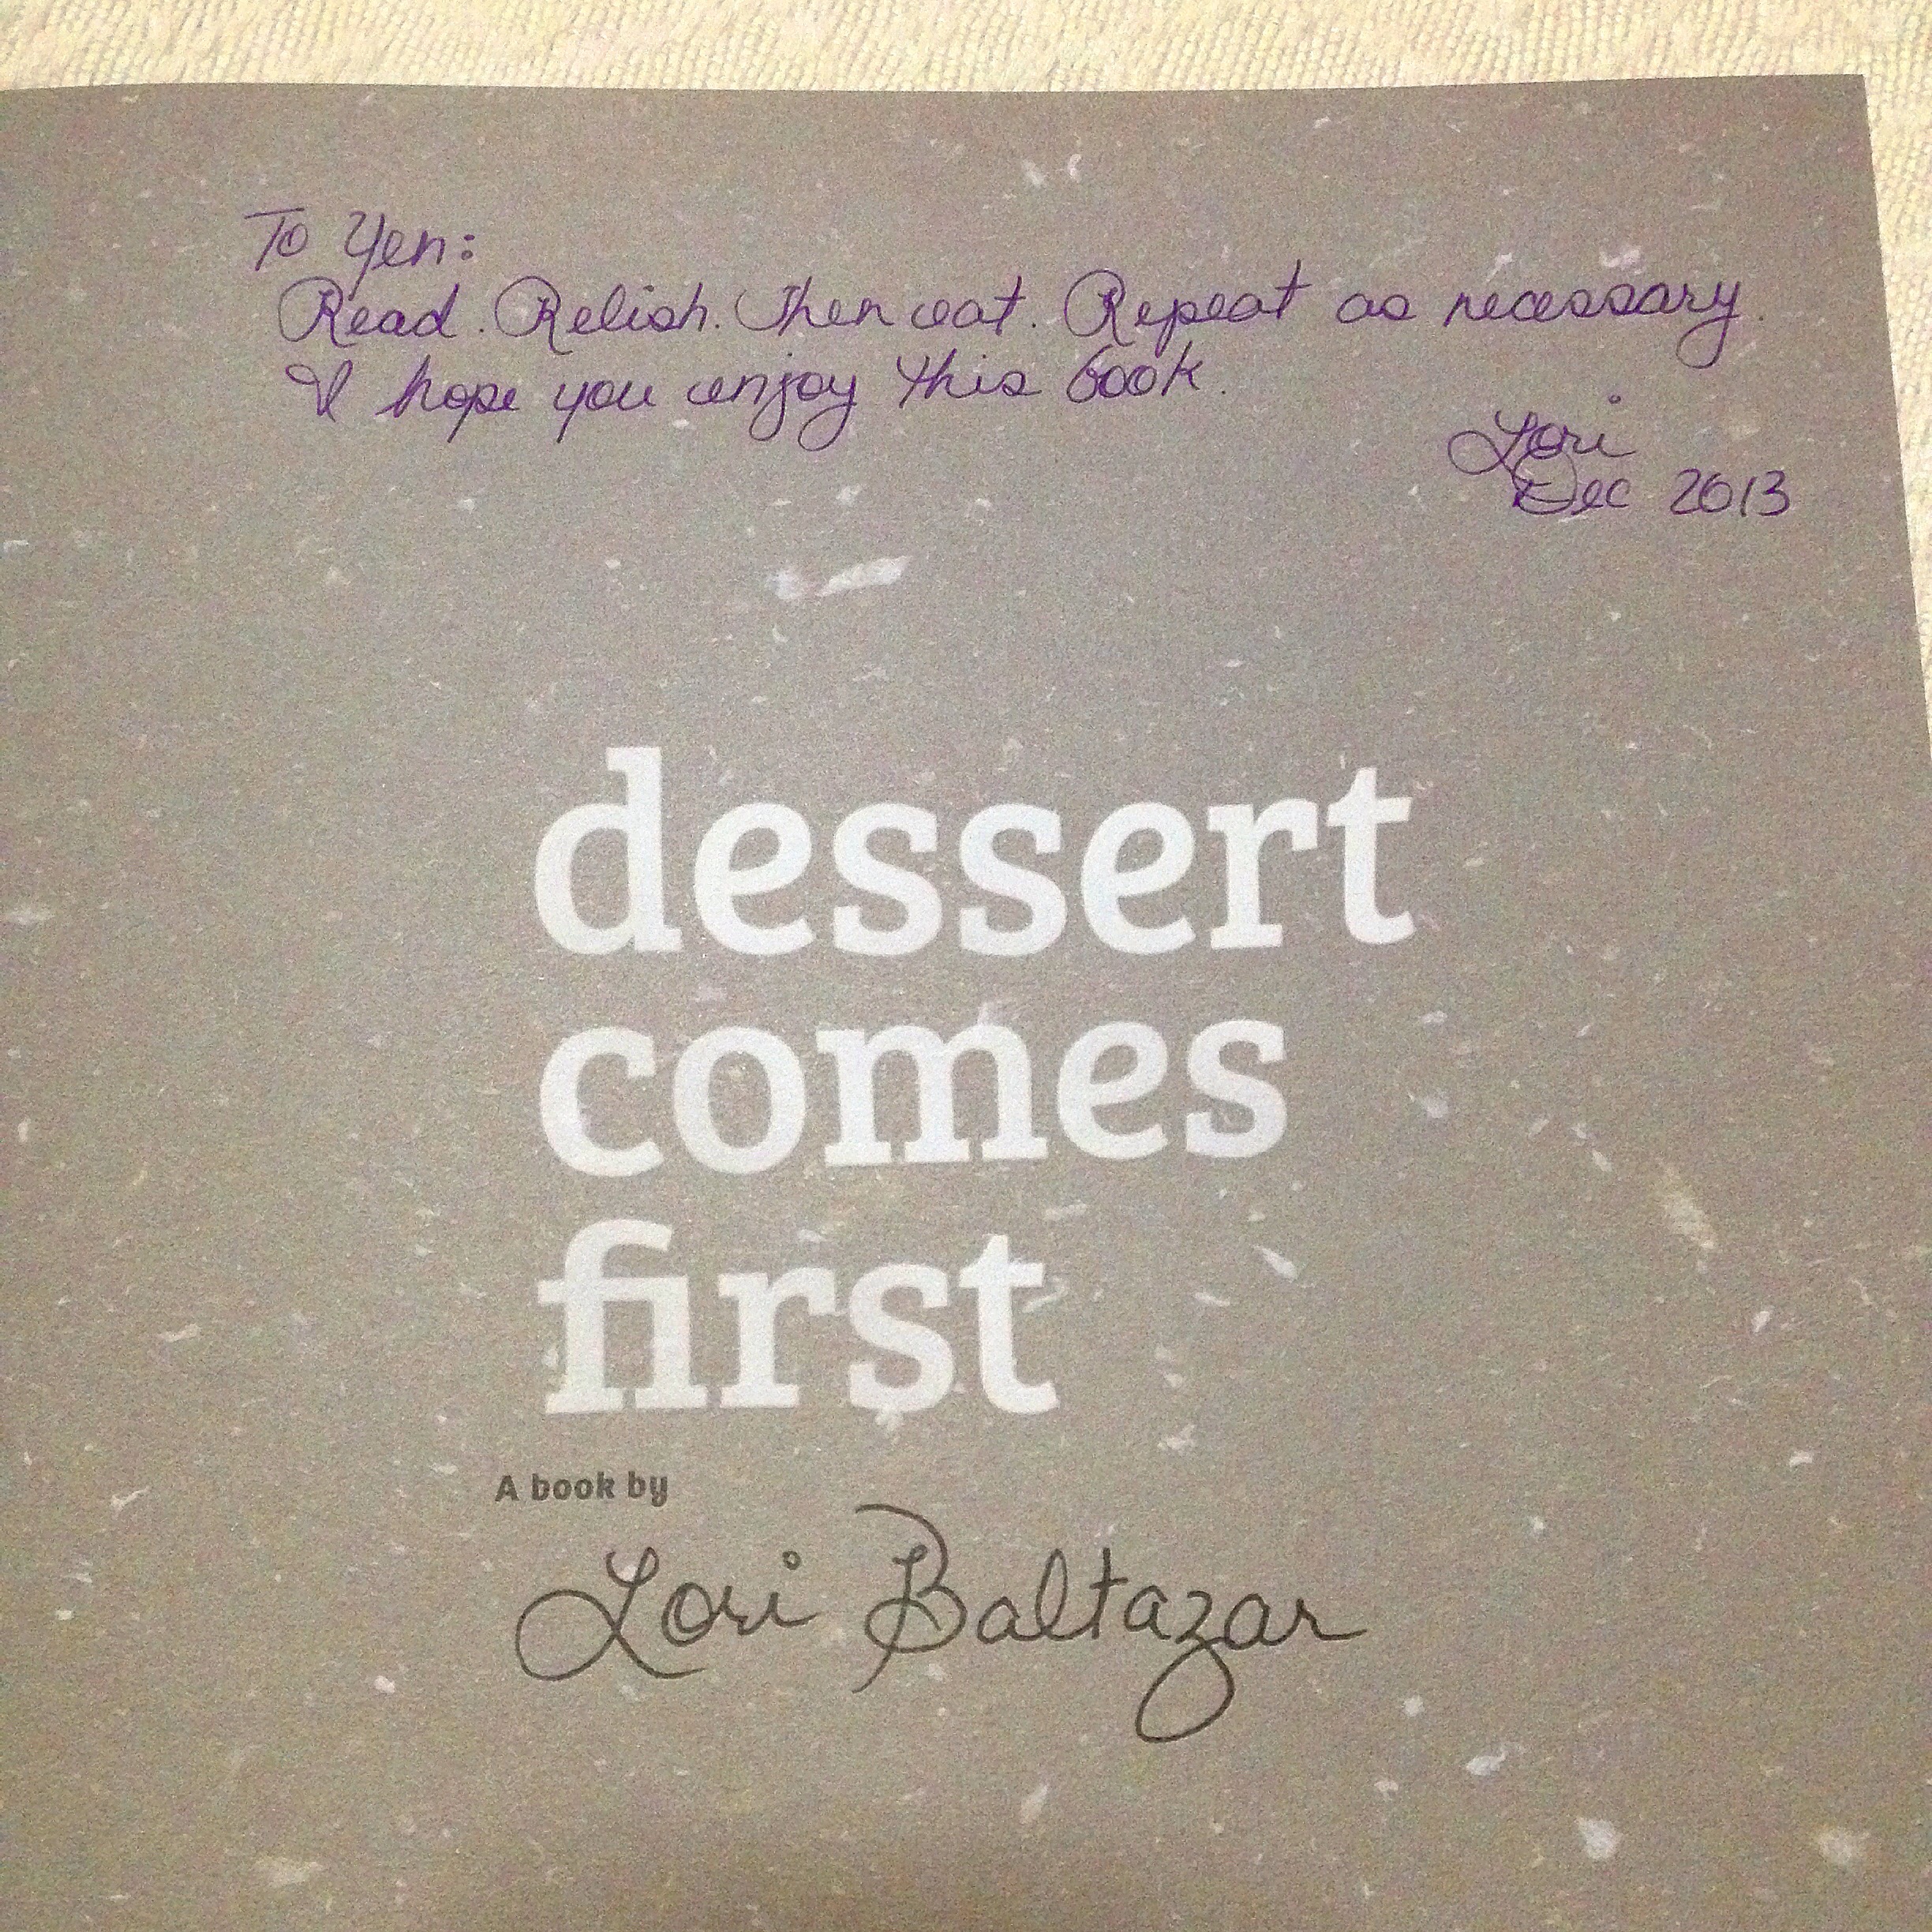 To Yen:
Read. Relish. Then eat. Repeat as necessary.
I hope you enjoy this book.
Lori
Dec 2013
dessert
comes
first
A book by
Lori Baltazar